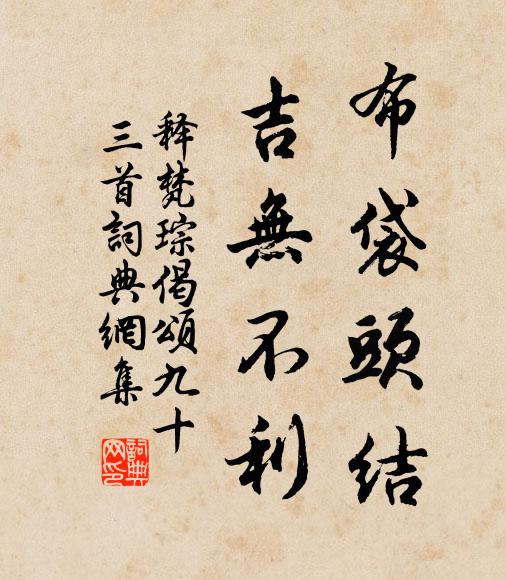 布袋頭結
吉無不利
释梵琮偈頌九十
三首詞典網集
詞典
网印